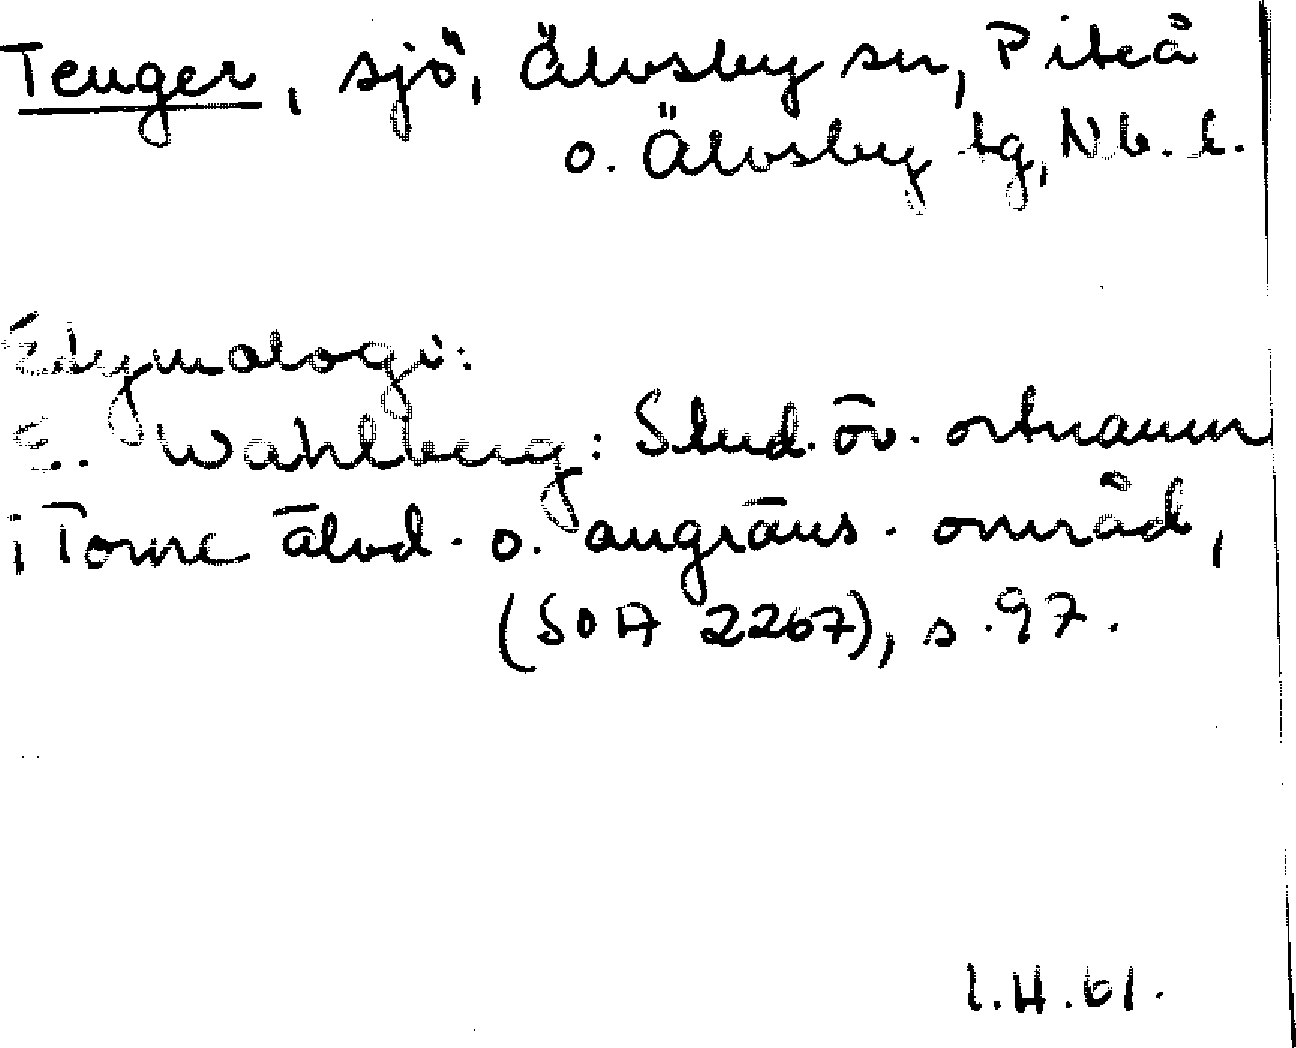 Tenger, sjö, Älvsby sn, Piteå
o. Älvsby tg, Nb. l.
Etymologi:
E. Wahlberg: Stud. öv. ortnamn
i Torne älvd. o. angräns. område,
(SOA 2267), s. 97.
I.H.61.